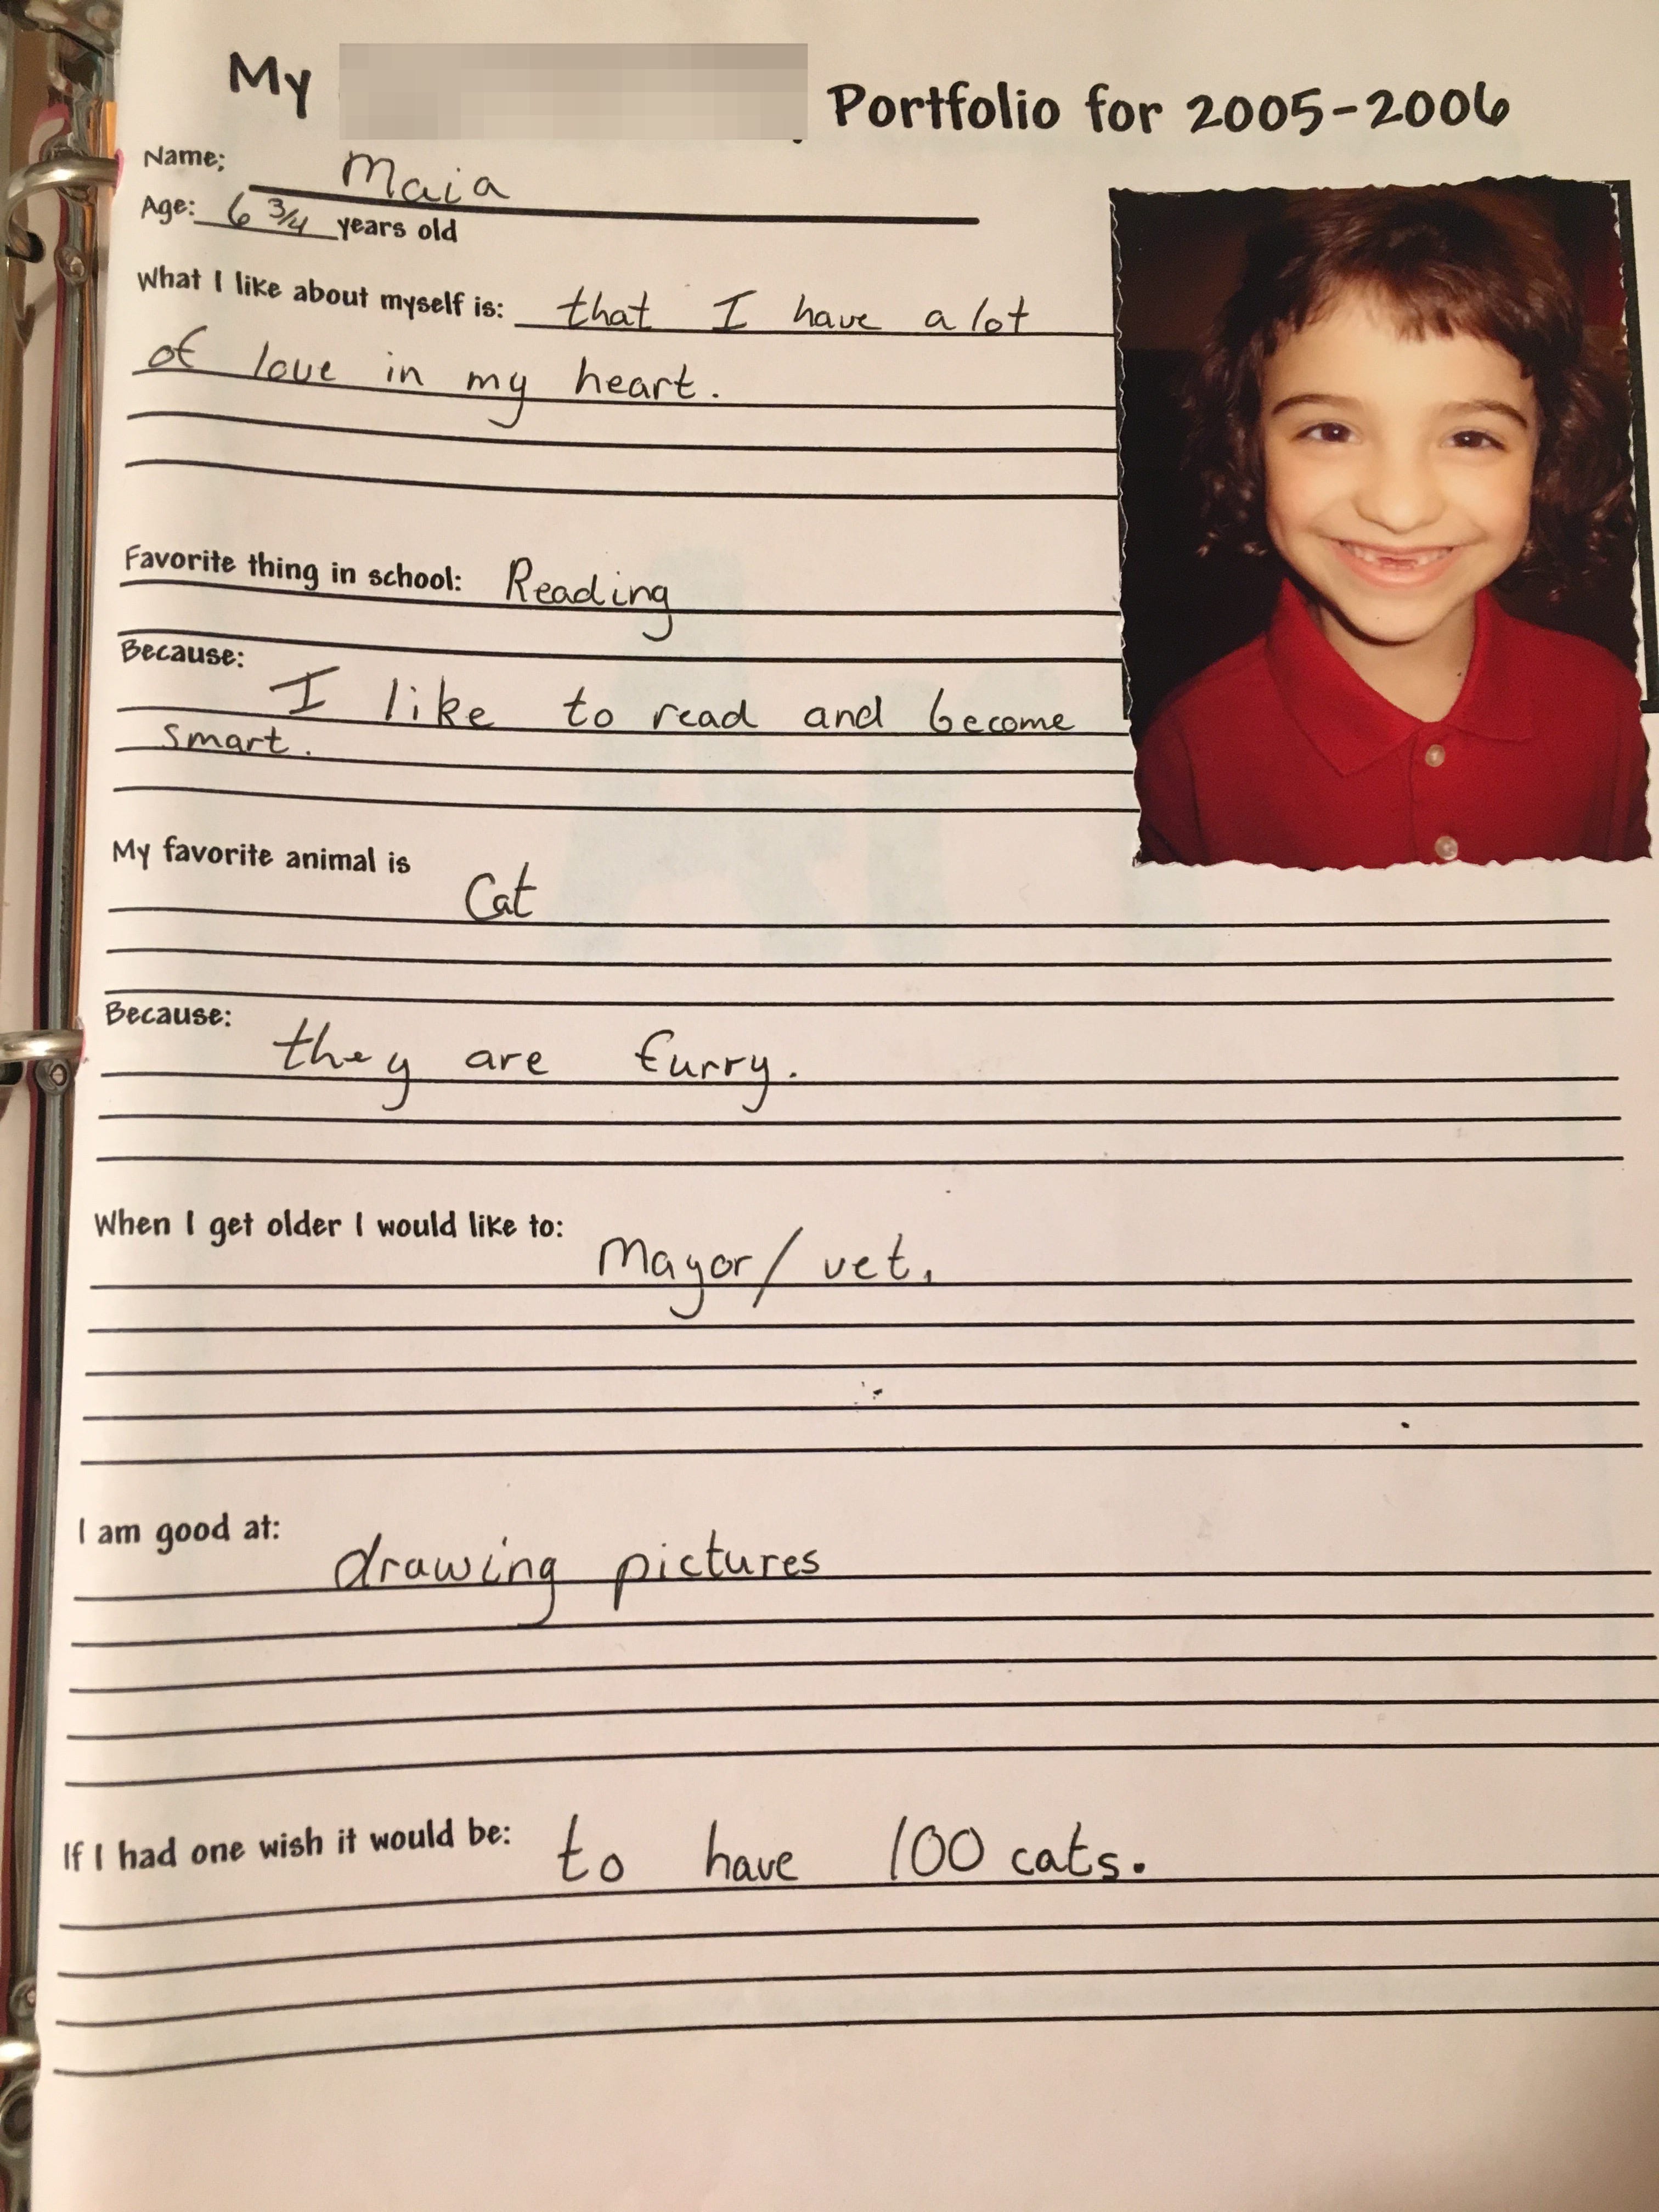 My Portfolio for 2005-2006
Name: Maia
Age: 6 3/4 years old
What I like about myself is: that I have a lot
of love in my heart.
Favorite thing in school: Reading
Because:
I like to read and become
smart.
My favorite animal is
Cat
Because:
they are furry.
When I get older I would like to:
Mayor/ vet.
I am good at:
drawing pictures
If I had one wish it would be: to have 100 cats.